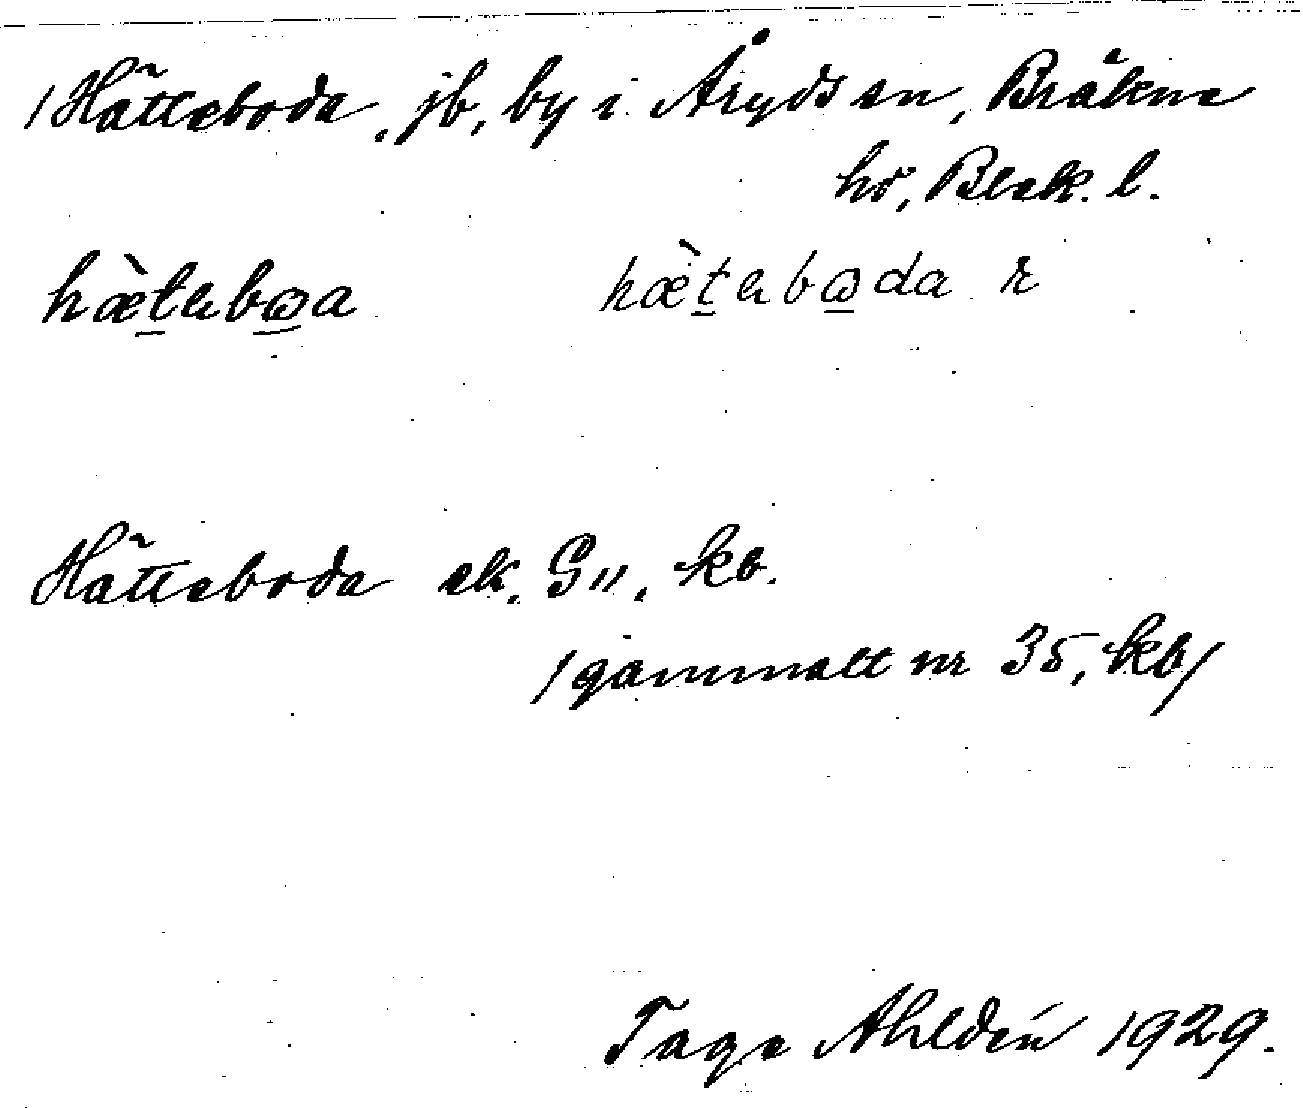 /Hätteboda, jb, by i Åryds sn, Bräkne
hd, Blek. l.
hæ̀t̲abω̲a hæ̀t̲abω̲da r
Hätteboda ek. G11, kb.
/gammalt nr 35, kb/
Tage Ahldén 1929.